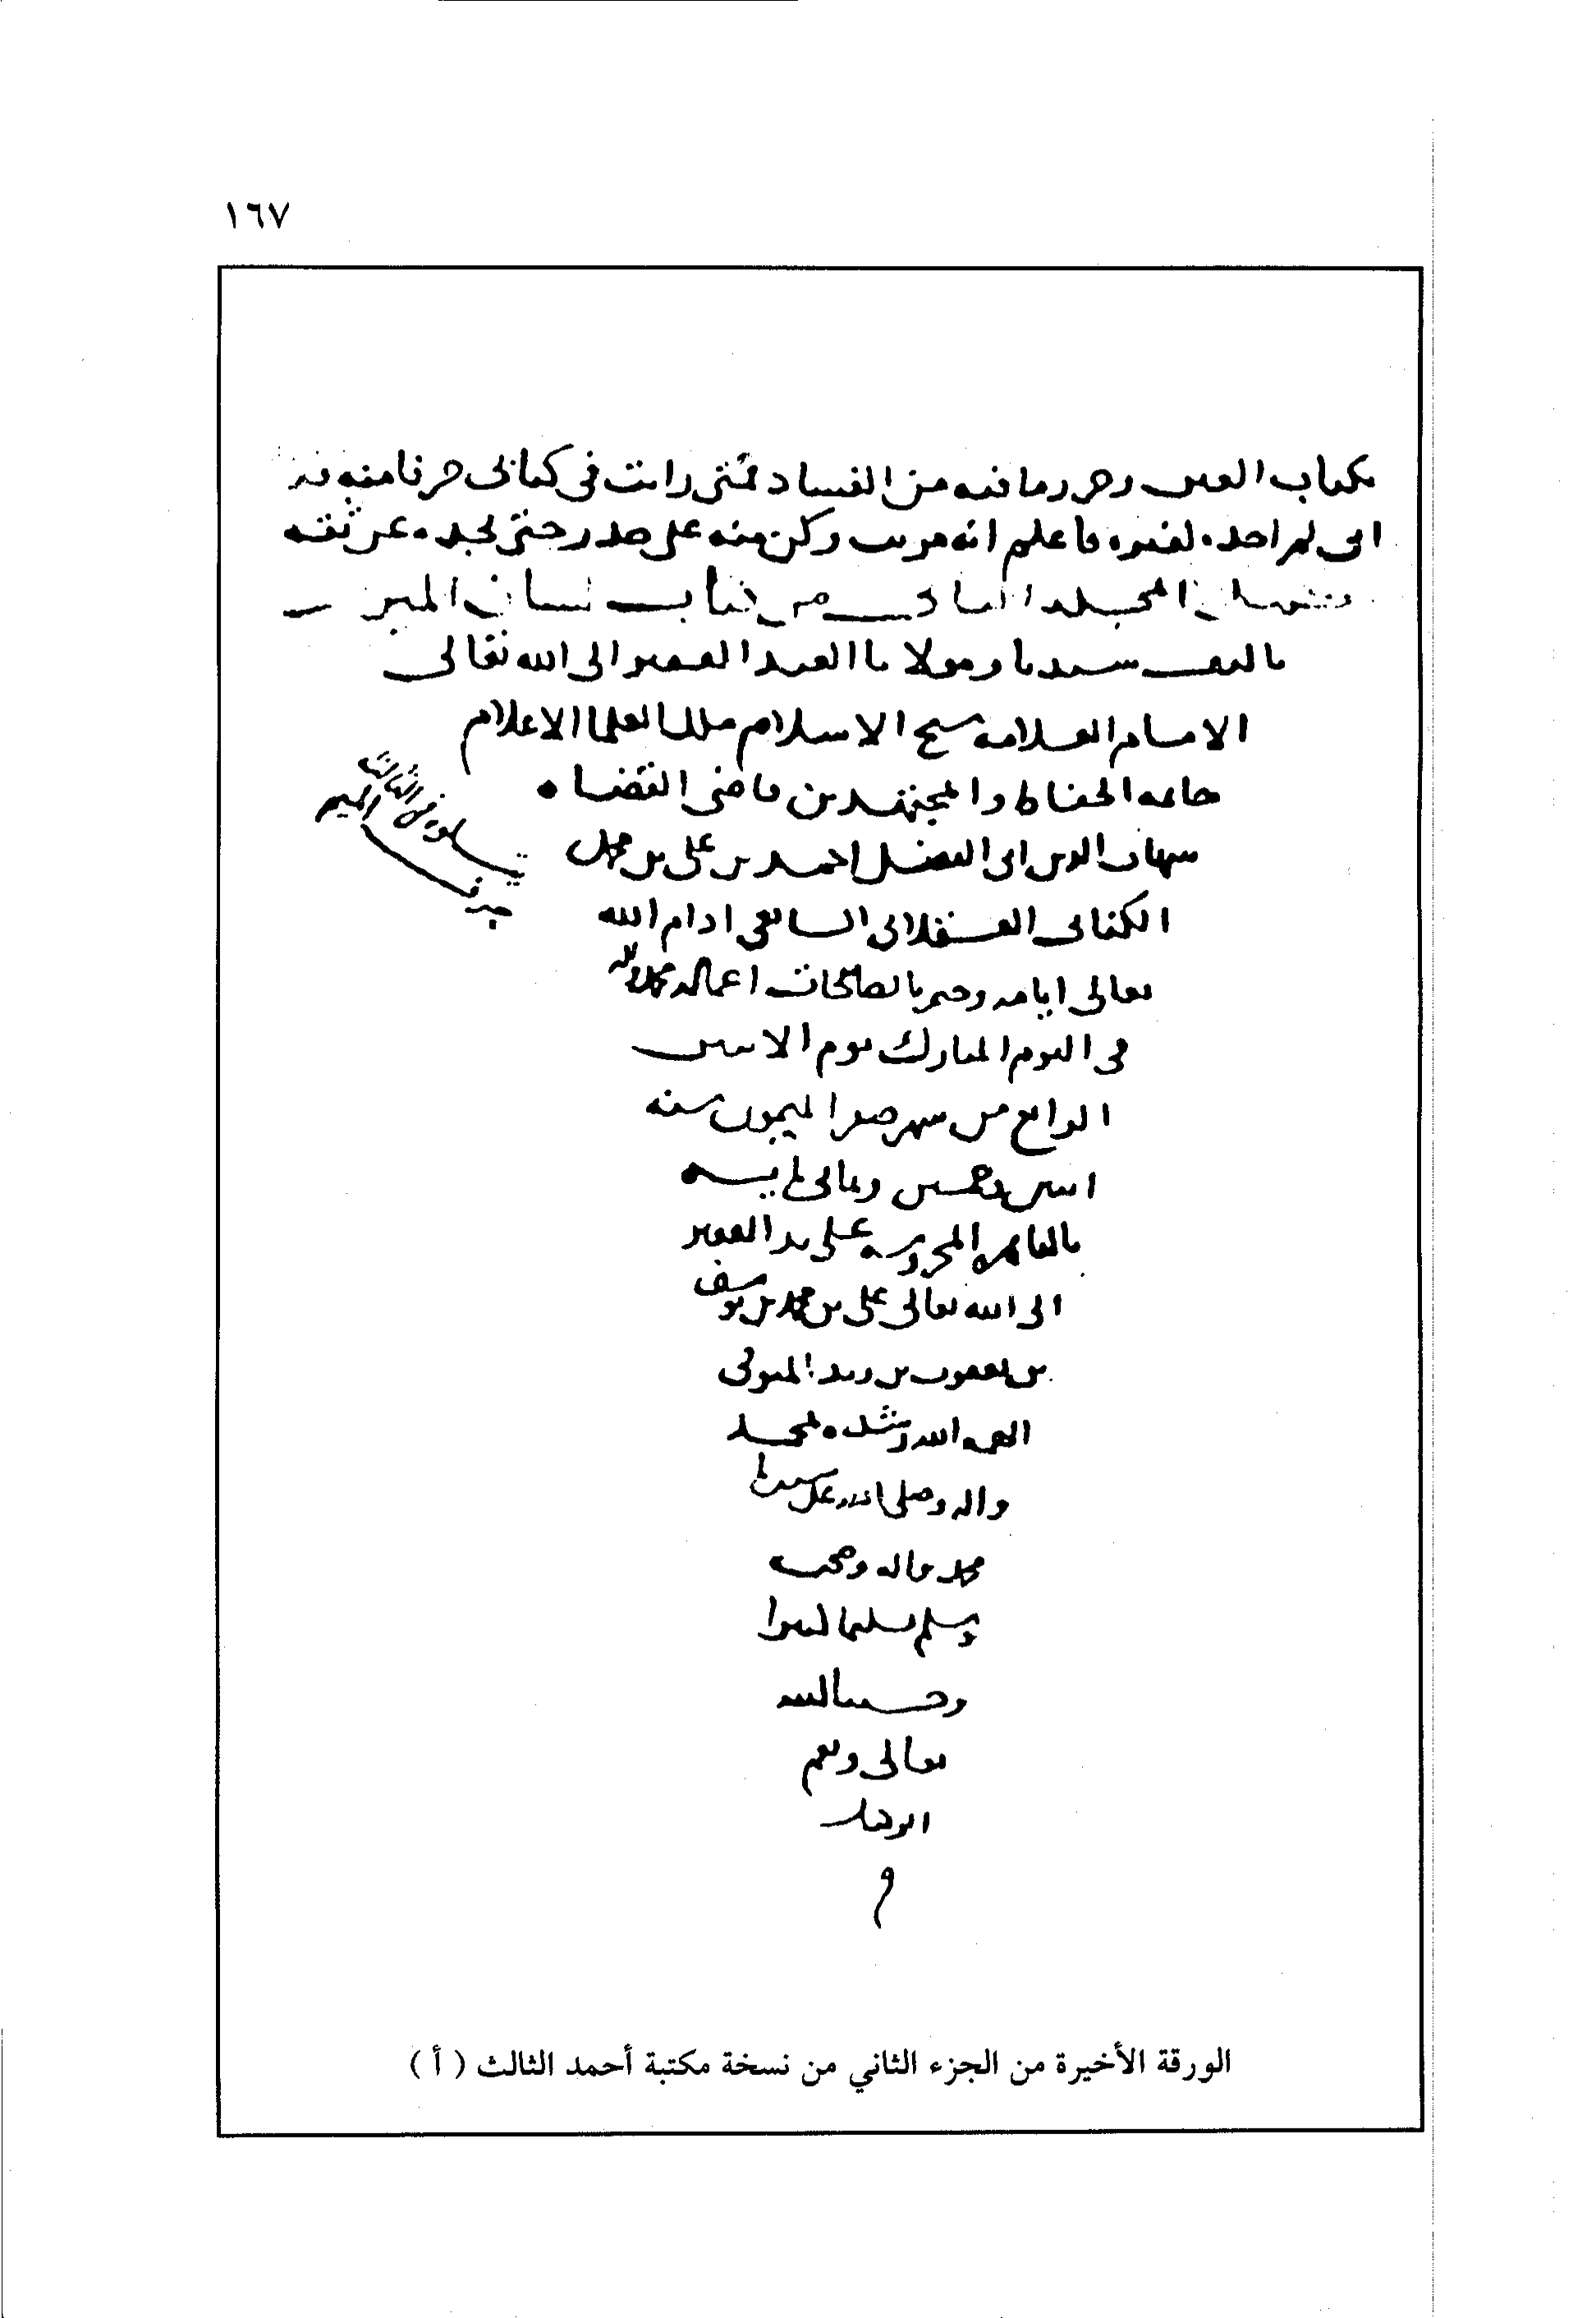 ١٦٧
بكتاب العين وهي وما فيه من الفساد فمتى رايت في كتابي حرفا منه قد
اني لم اجده لغيره فاعلم انه مريب وكن منه على حذر حتى تجده عن ثقة
المجلد الثاني من كتاب لسان الميزان
تاليف سيدنا ومولانا العبد الفقير الى الله تعالى
الامام العلامة شيخ الاسلام ملك العلما الاعلام
خاتمة الحفاظ والمجتهدين قاضي القضاه
شهاب الدين ابي الفضل احمد بن علي بن محمد
الكناني العسقلاني الشافعي ادام الله
تعالى ايامه وختم بالصالحات اعماله بمحمد واله
في اليوم المبارك يوم الاثنين
الرابع من شهر صفر الميمون سنه
اثنين وخمسين وثماني مايه
بالقاهره المحروسه على يد الفقير
الى الله تعالى علي بن محمد بن يوسف
بن يعقوب بن المنوفي
الهمه الله رشده بمحمد
واله وصلى الله على سيدنا
محمد واله وصحبه
وسلم تسليما كثيرا
وحسبنا الله
تعالى ونعم
الوكيل
يتلوه في الثالث
حرف الميم
الورقة الأخيرة من الجزء الثاني من نسخة مكتبة أحمد الثالث ( أ )